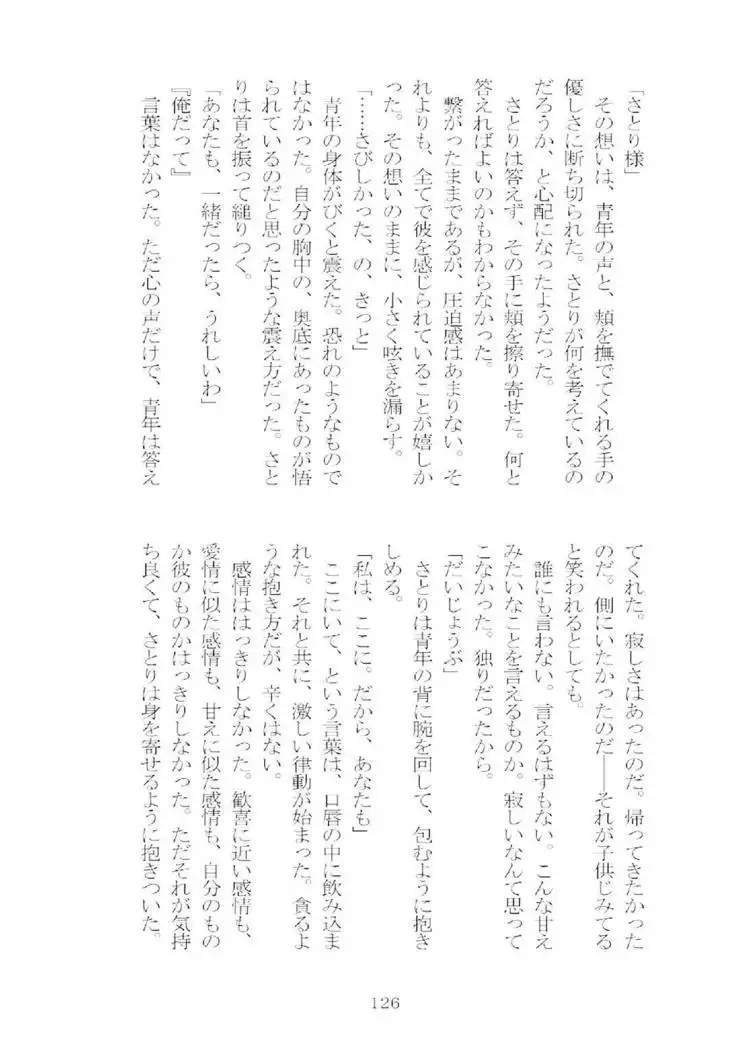 「さとり様」
　その想いは、青年の声と、頬を撫でてくれる手の
優しさに断ち切られた。さとりが何を考えているの
だろうか、と心配になったようだった。
　さとりは答えず、その手に頬を擦り寄せた。何と
答えればよいのかもわからなかった。
　繋がったままであるが、圧迫感はあまりない。そ
れよりも、全てで彼を感じられていることが嬉しか
った。その想いのままに、小さく呟きを漏らす。
「……さびしかった、の、きっと」
　青年の身体がびくと震えた。恐れのようなもので
はなかった。自分の胸中の、奥底にあったものが悟
られているのだと思ったような震え方だった。さと
りは首を振って縋りつく。
「あなたも、一緒だったら、うれしいわ」
『俺だって』
　言葉はなかった。ただ心の声だけで、青年は答え
てくれた。寂しさはあったのだ。帰ってきたかった
のだ。側にいたかったのだ――それが子供じみてる
と笑われるとしても。
　誰にも言わない。言えるはずもない。こんな甘え
みたいなことを言えるものか。寂しいなんて思って
こなかった。独りだったから。
「だいじょうぶ」
　さとりは青年の背に腕を回して、包むように抱き
しめる。
「私は、ここに。だから、あなたも」
　ここにいて、という言葉は、口唇の中に飲み込ま
れた。それと共に、激しい律動が始まった。貪るよ
うな抱き方だが、辛くはない。
　感情ははっきりしなかった。歓喜に近い感情も、
愛情に似た感情も、甘えに似た感情も、自分のもの
か彼のものかはっきりしなかった。ただそれが気持
ち良くて、さとりは身を寄せるように抱きついた。
126